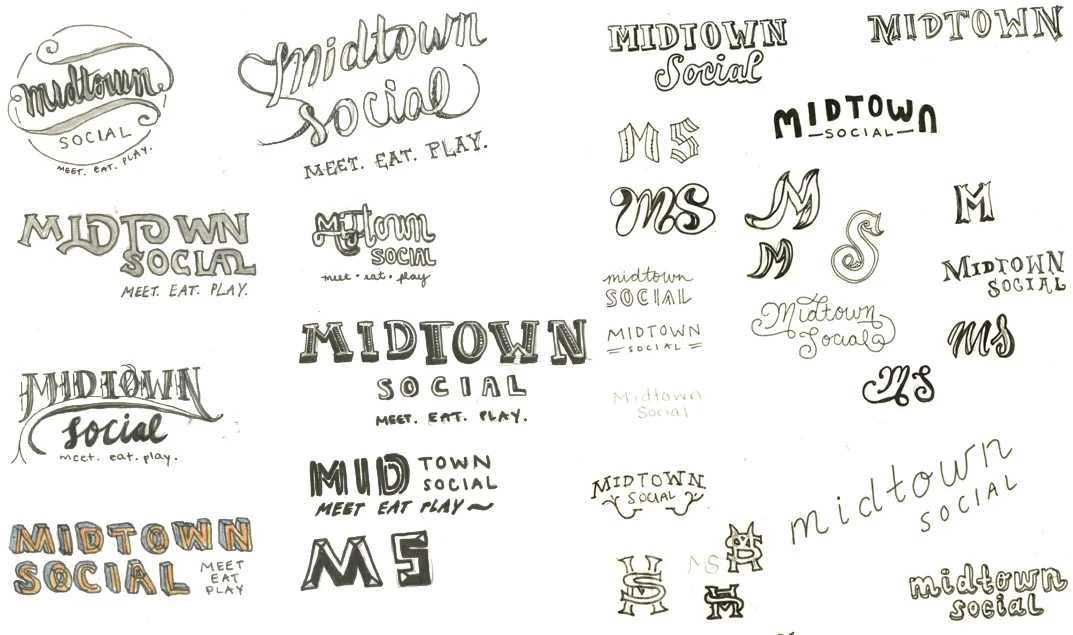 midtown
SOCIAL
MEET. EAT. PLAY.
midtown
social
MEET. EAT. PLAY.
MIDTOWN
SOCIAL
MEET. EAT. PLAY.
Midtown
SOCIAL
meet • eat • play
MIDTOWN
social
meet. eat. play.
MIDTOWN
SOCIAL
MEET. EAT. PLAY.
MID TOWN
SOCIAL
MEET EAT PLAY
MIDTOWN
SOCIAL
MEET
EAT
PLAY
MS
MIDTOWN
Social
MIDTOWN
MIDTOWN
SOCIAL
MS
MS
M
M
S
M
midtown
SOCIAL
MIDTOWN
SOCIAL
MIDTOWN
SOCIAL
Midtown
Social
MS
MS
Midtown
Social
MIDTOWN
SOCIAL
midtown
SOCIAL
MS
MS
MS
MS
midtown
social